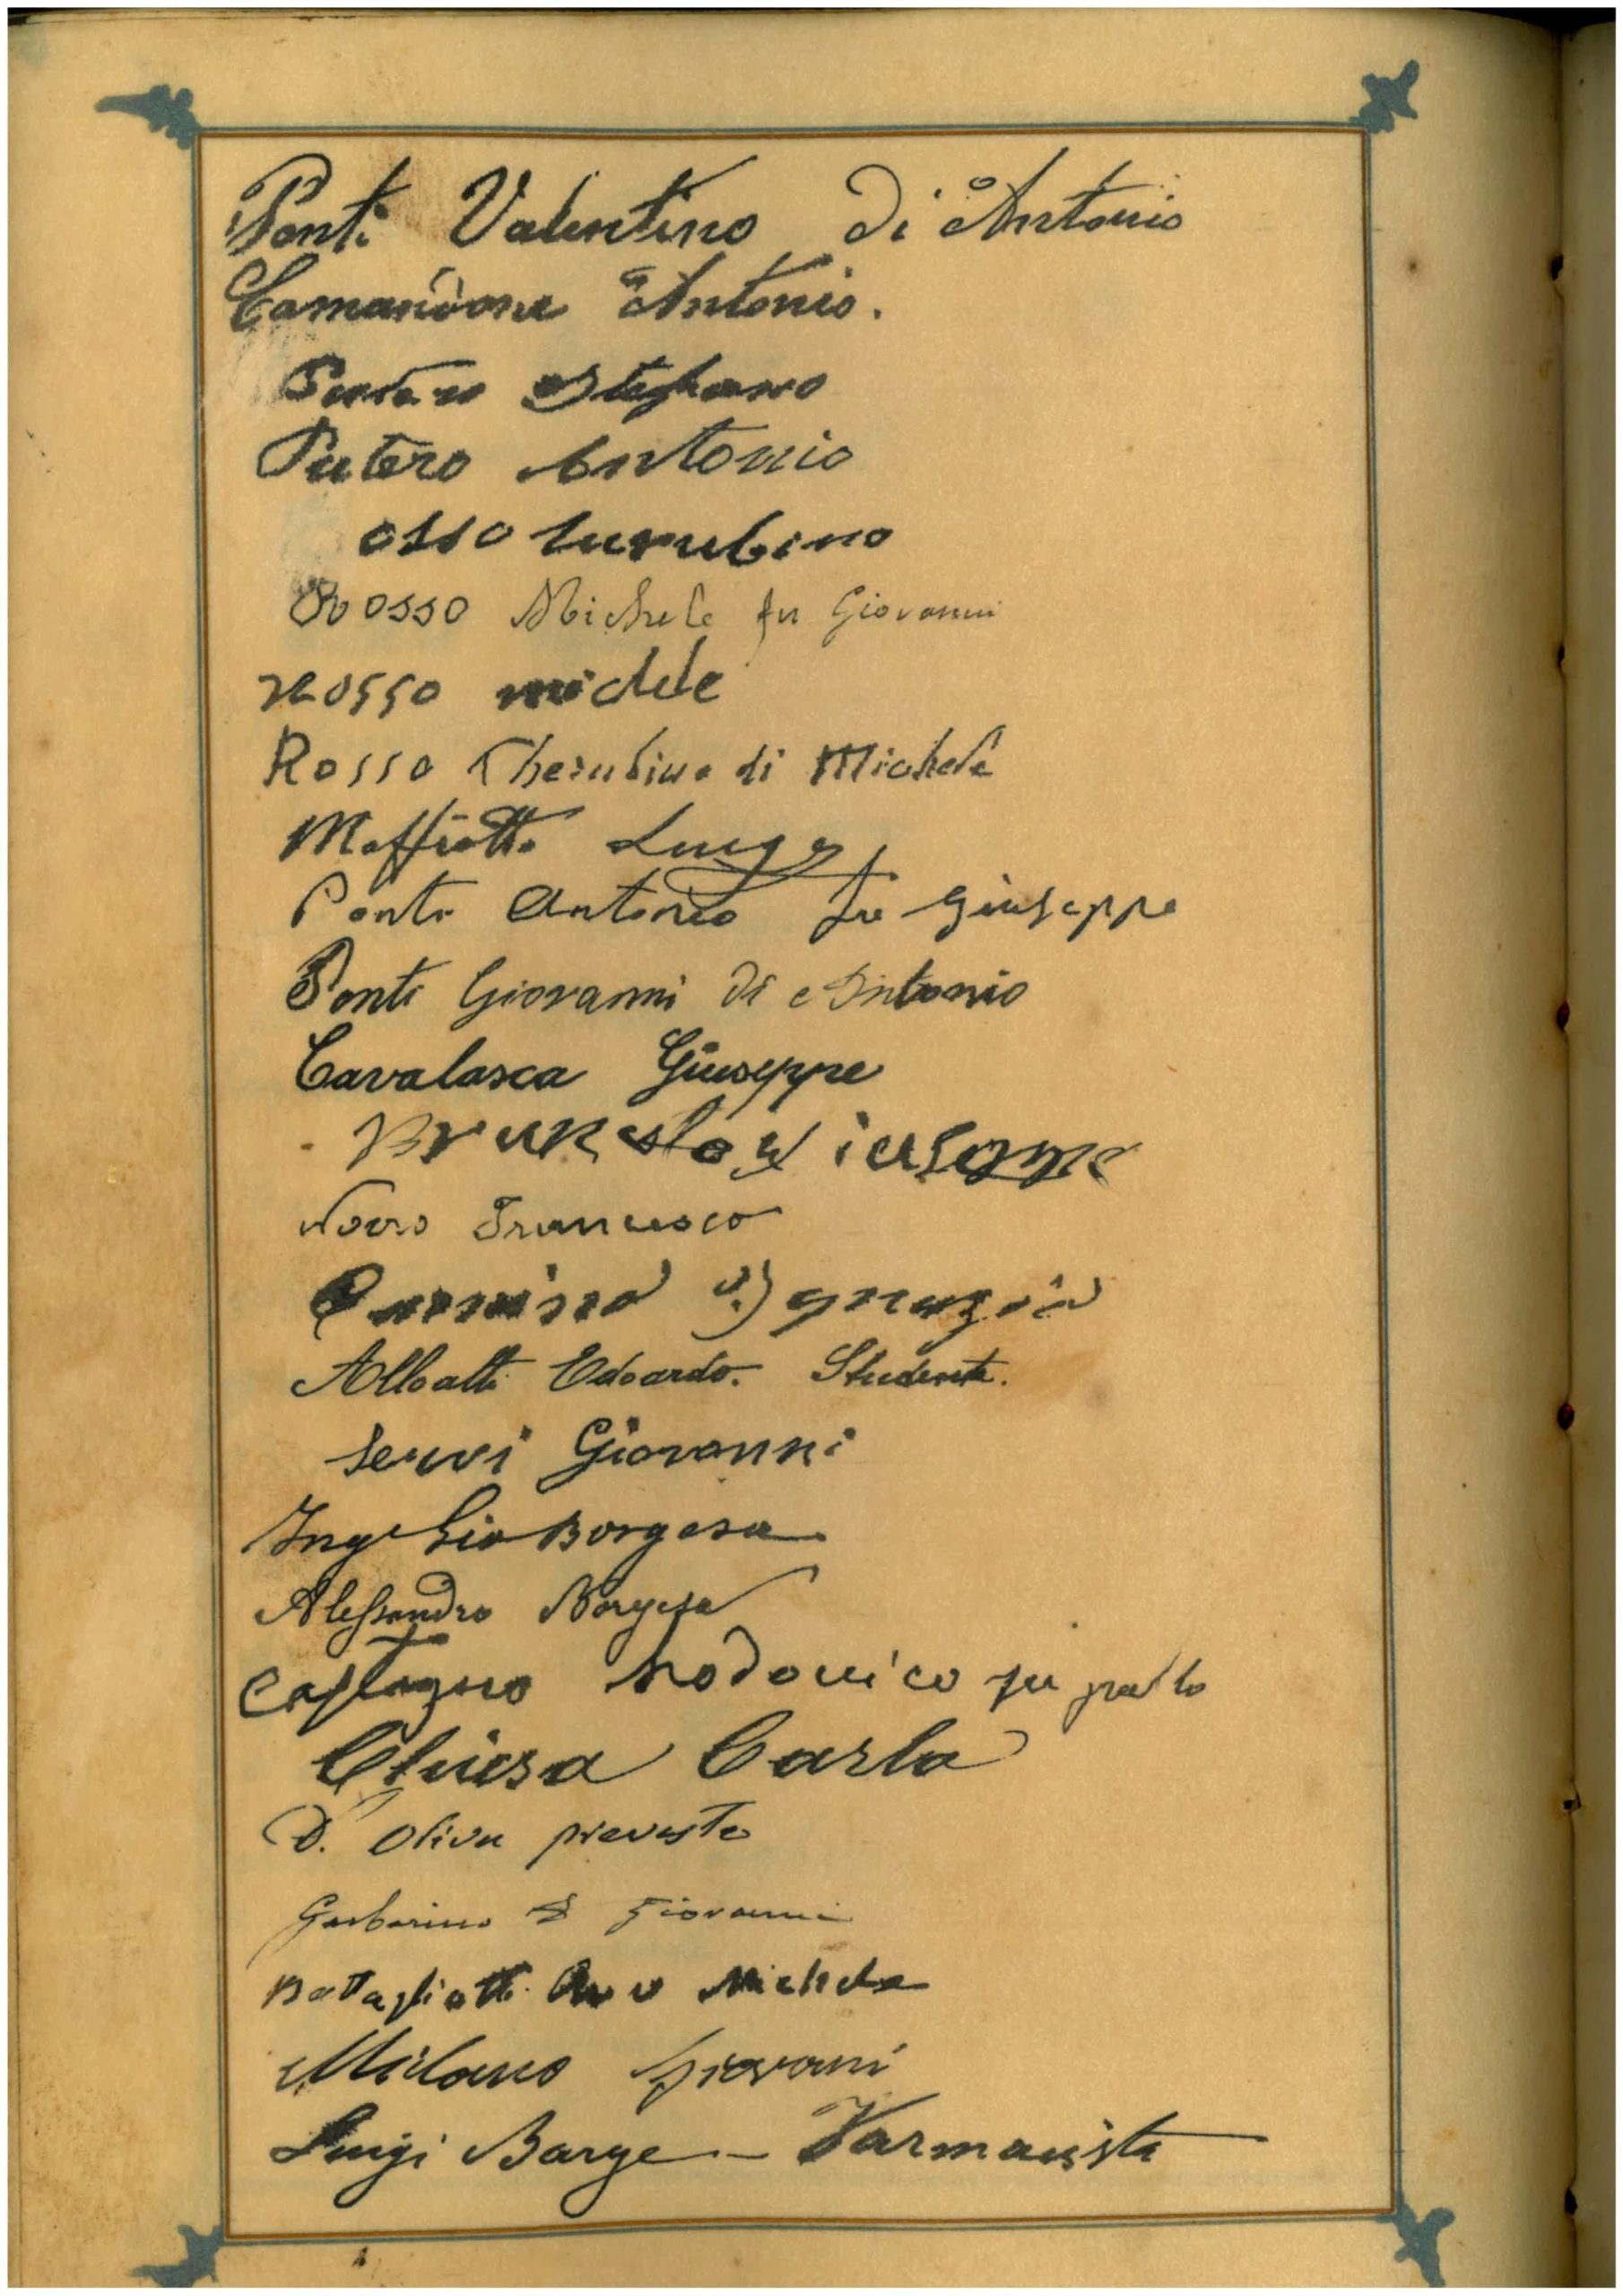 Ponti Valentino di Antonio
Comandone Antonio.
Stefano
Putero Antonio
osso
Rosso Michele fu Giovanni
Rosso michele
Rosso Cherubino di Michele
Maffiotti Luigi
Ponti Antonio fu Giuseppe
Ponti Giovanni di Antonio
Cavalasca Giuseppe
Novo Francesco
Edoardo. Studente.
Servi Giovanni
Ing Borgesa
Alessandro Borgesa
Castagno Lodovico fu
Chiesa Carlo
D. Oliva prevosto
Garbarino D Giovanni
Battagliotti Michele
Milano Giovani
Luigi Barge - Farmacista